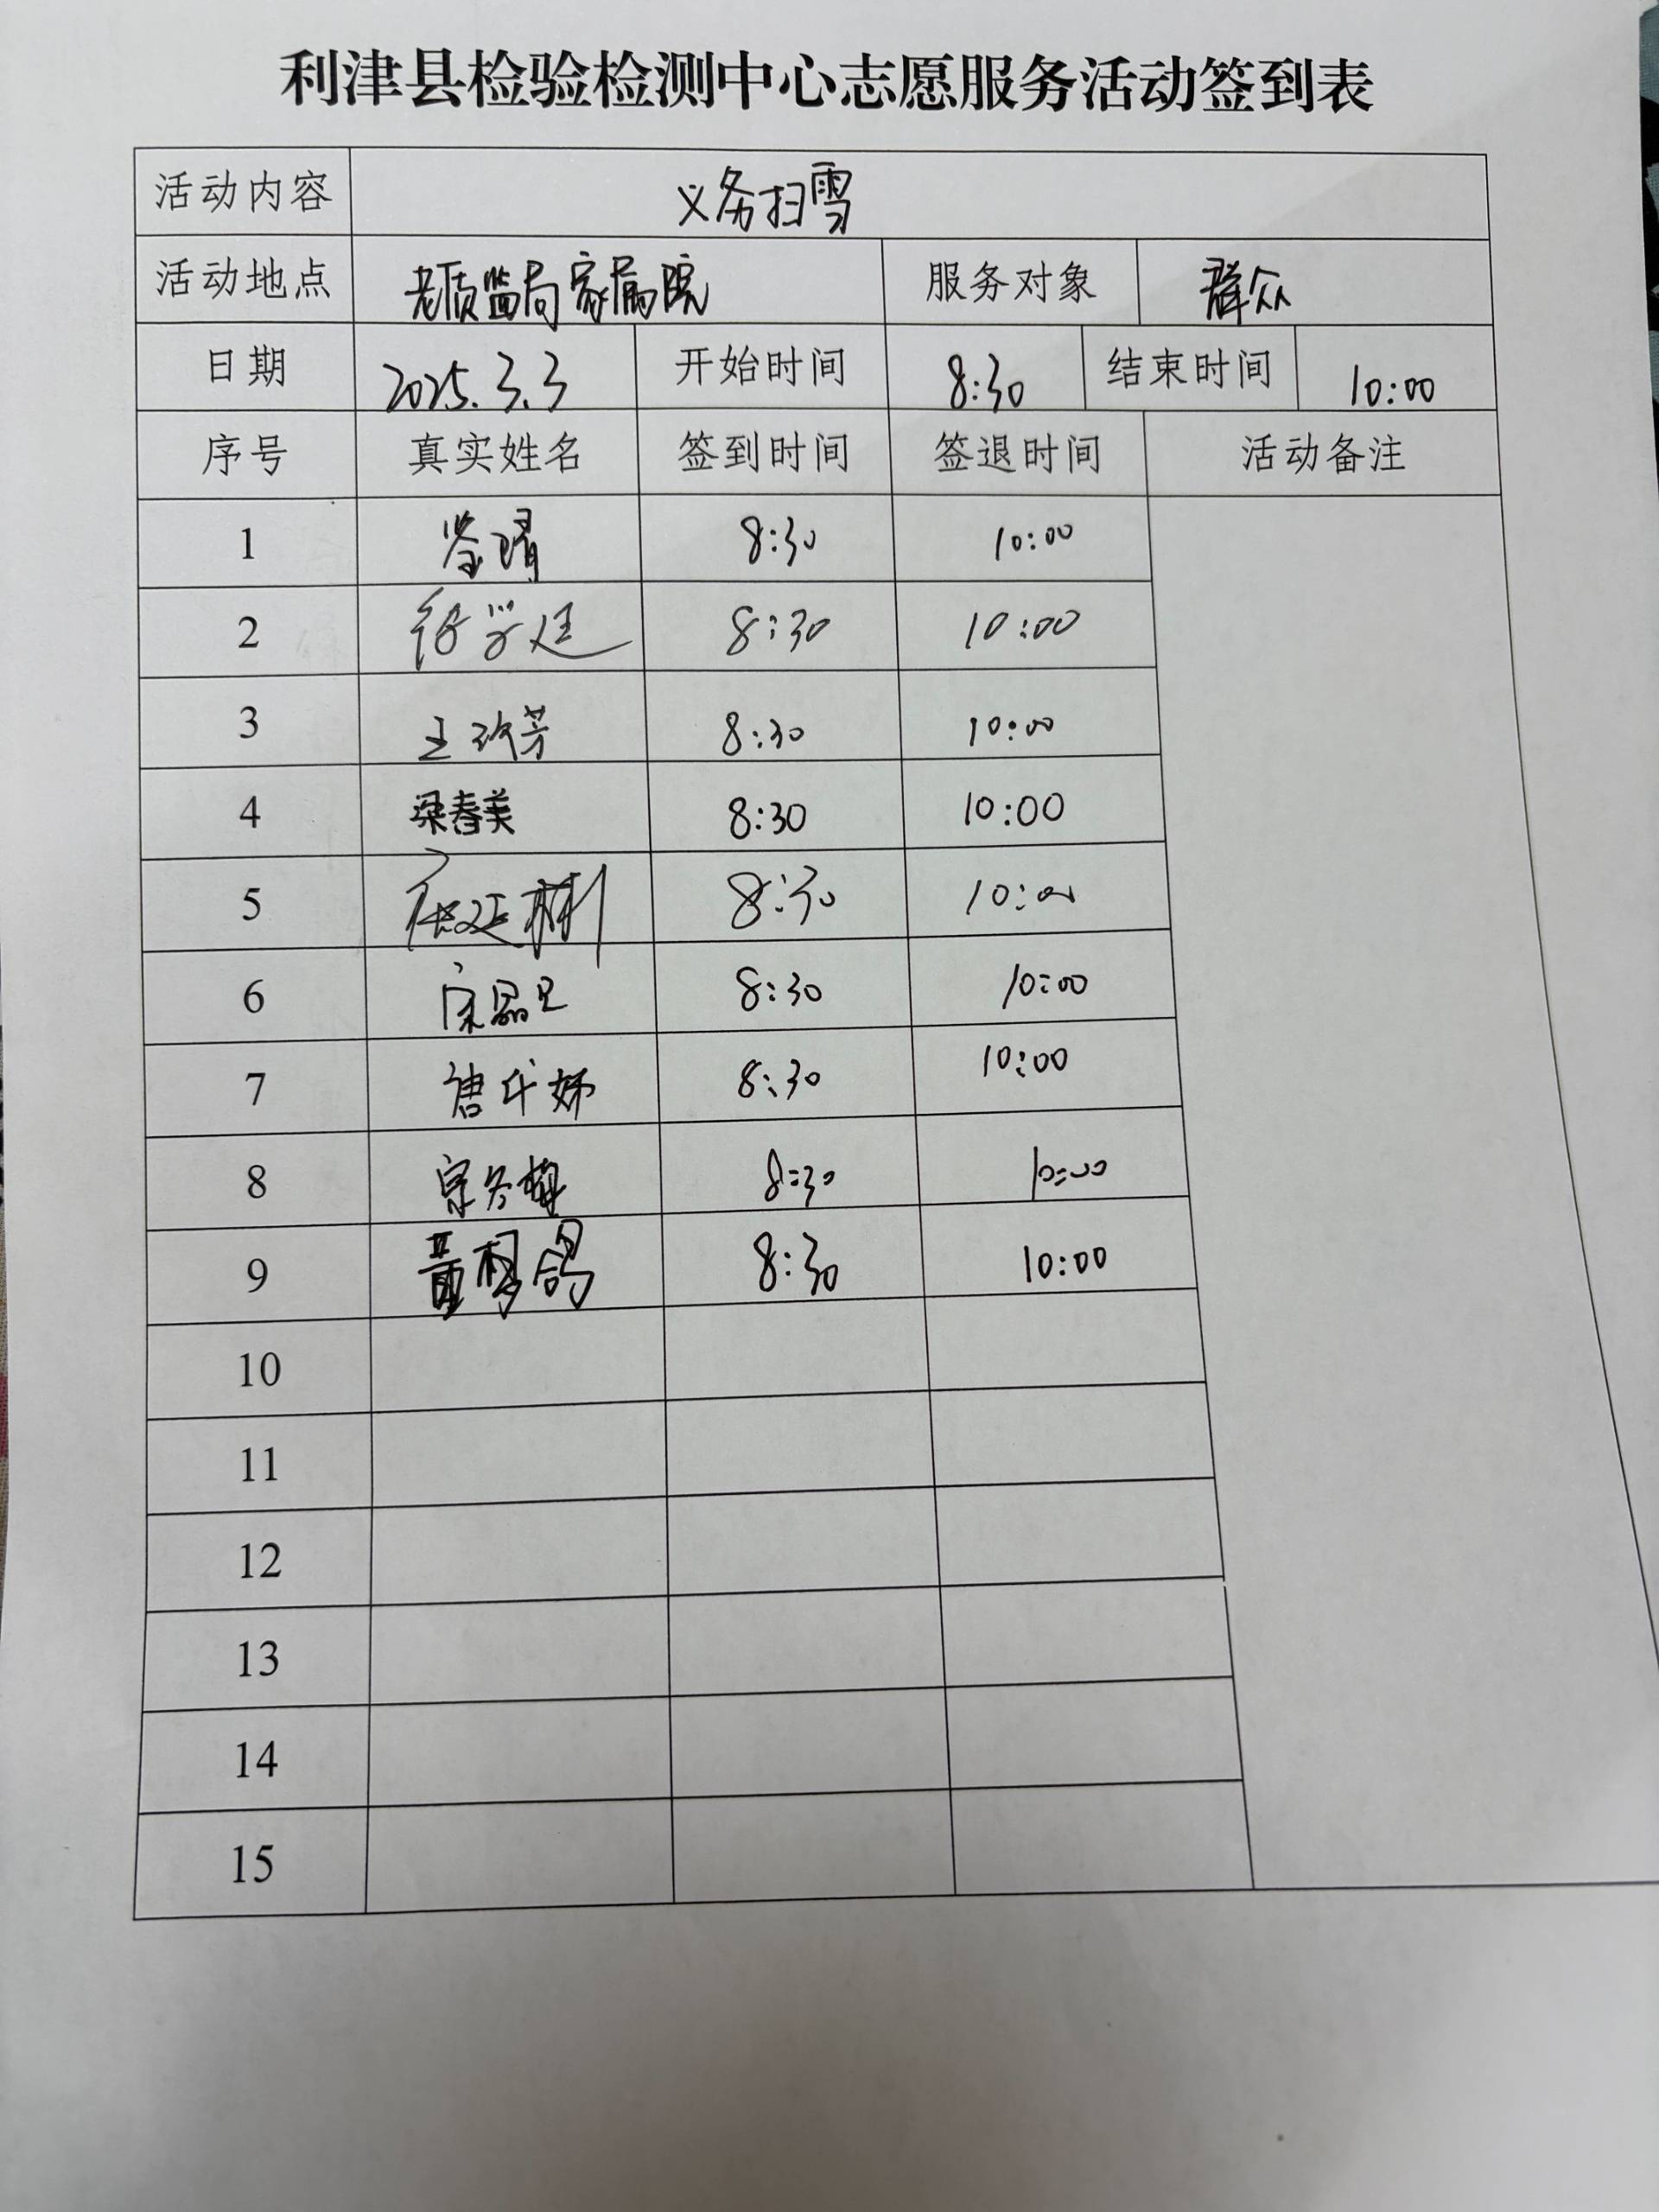 利津县检验检测中心志愿服务活动签到表
活动内容 义务扫雪
活动地点 老质监局家属院 服务对象 群众
日期 2025.3.3 开始时间 8:30 结束时间 10:00
序号 真实姓名 签到时间 签退时间 活动备注
1 8:30 10:00
2 8:30 10:00
3 王 芳 8:30 10:00
4 梁春美 8:30 10:00
5 8:30 10:00
6 8:30 10:00
7 唐 8:30 10:00
8 8:30 10:00
9 董 鸽 8:30 10:00
10
11
12
13
14
15